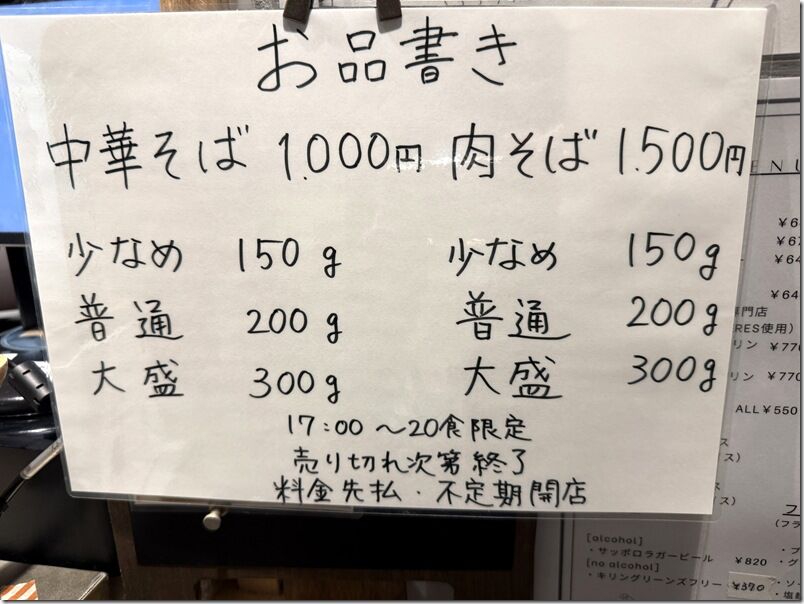 お品書き
中華そば 1.000円 肉そば 1.500円
少なめ 150g 少なめ 150g
普通 200g 普通 200g
大盛 300g 大盛 300g
17:00 〜20食限定
売り切れ次第終了
料金先払・不定期開店
ENU
¥64
専門店
RES使用)
リン ¥770
リン ¥770
ALL ¥550
ス)
ス)
(フラ
[alcohol]
・サッポロラガービール ¥820
[no alcohol]
・キリングリーンズフリー ¥390